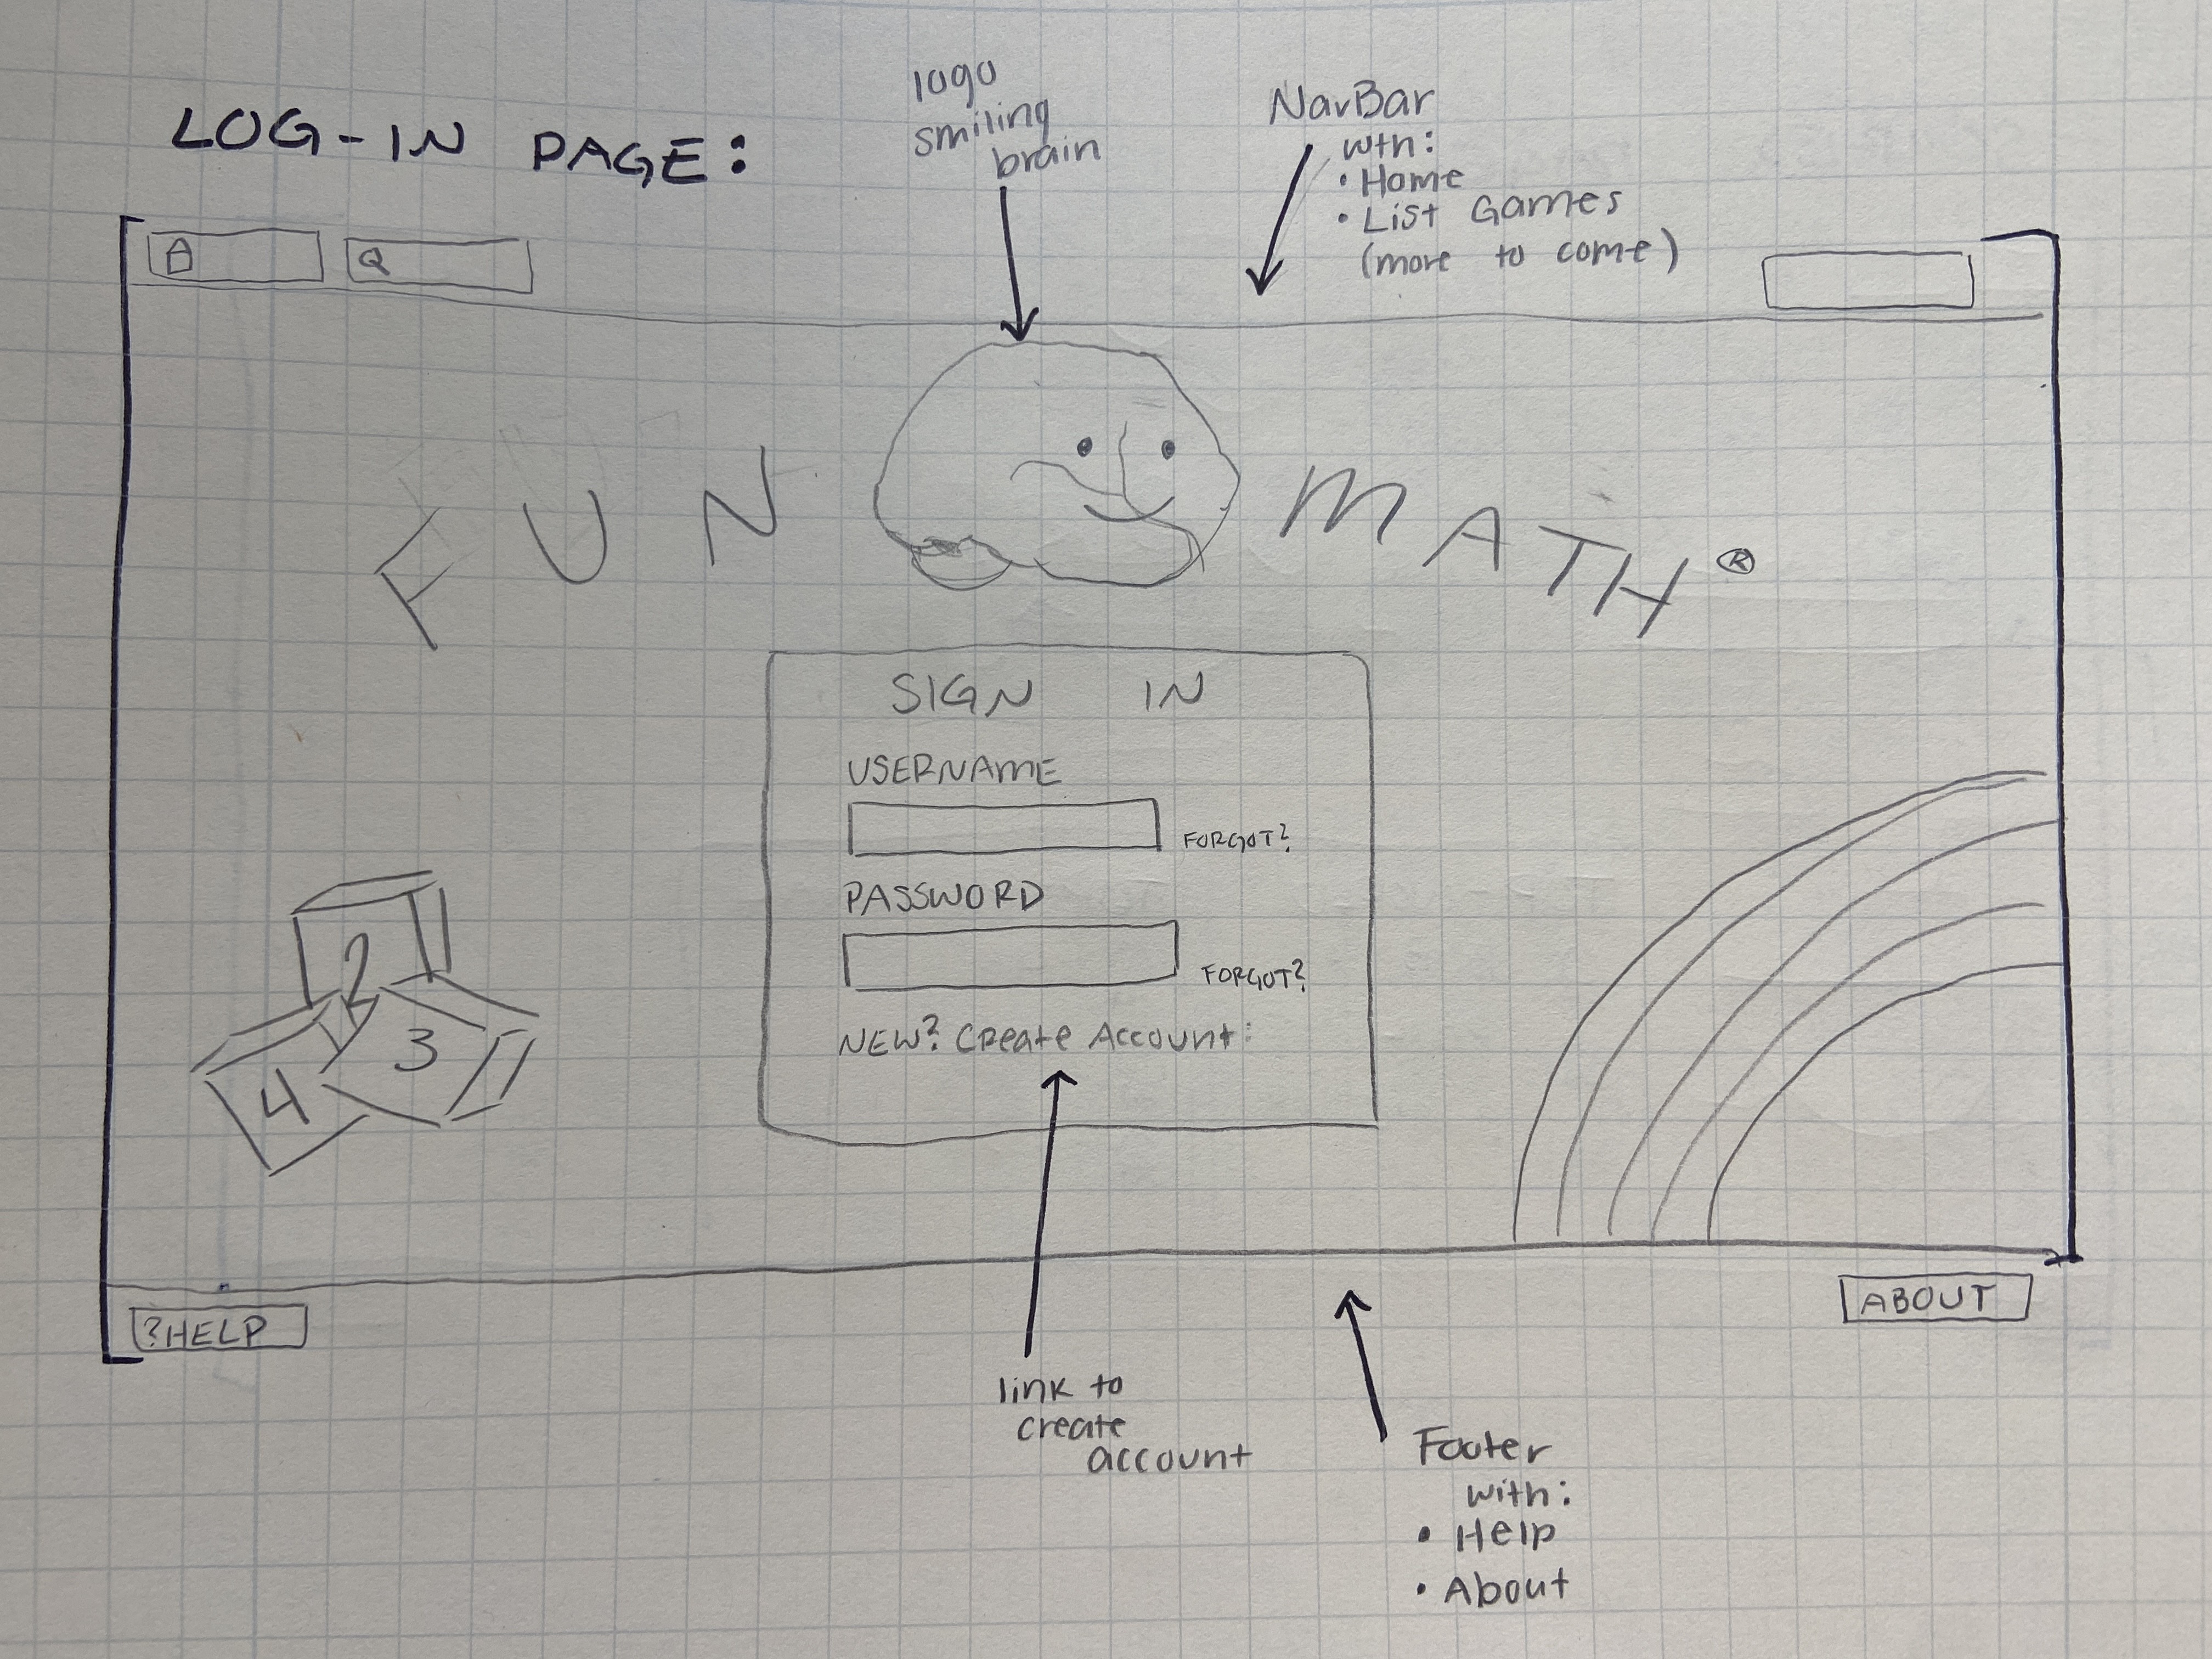 LOG-IN PAGE:
logo
smiling
brain
NavBar
with:
• Home
• List Games
(more to come)
FUN MATH ®
SIGN IN
USERNAME
FORGOT?
PASSWORD
FORGOT?
NEW? Create Account:
2
3
4
?HELP
ABOUT
link to
create
account
Footer
with:
• Help
• About